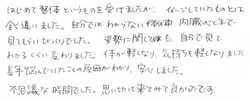 はじめて整体というものを受けましたが、イメージしていたものとて
全く違いました。自分ではわからない体の中、内臓のことまで
見てもらいびっくりでした。姿勢に関しては、自分で見て
わかるくらい変わりました。体が軽くなり、気持ちも軽くなりました
長年悩んでいたことの原因がわかり、安心しました。
不思議な時間でした。思いきって来てみて良かったです。